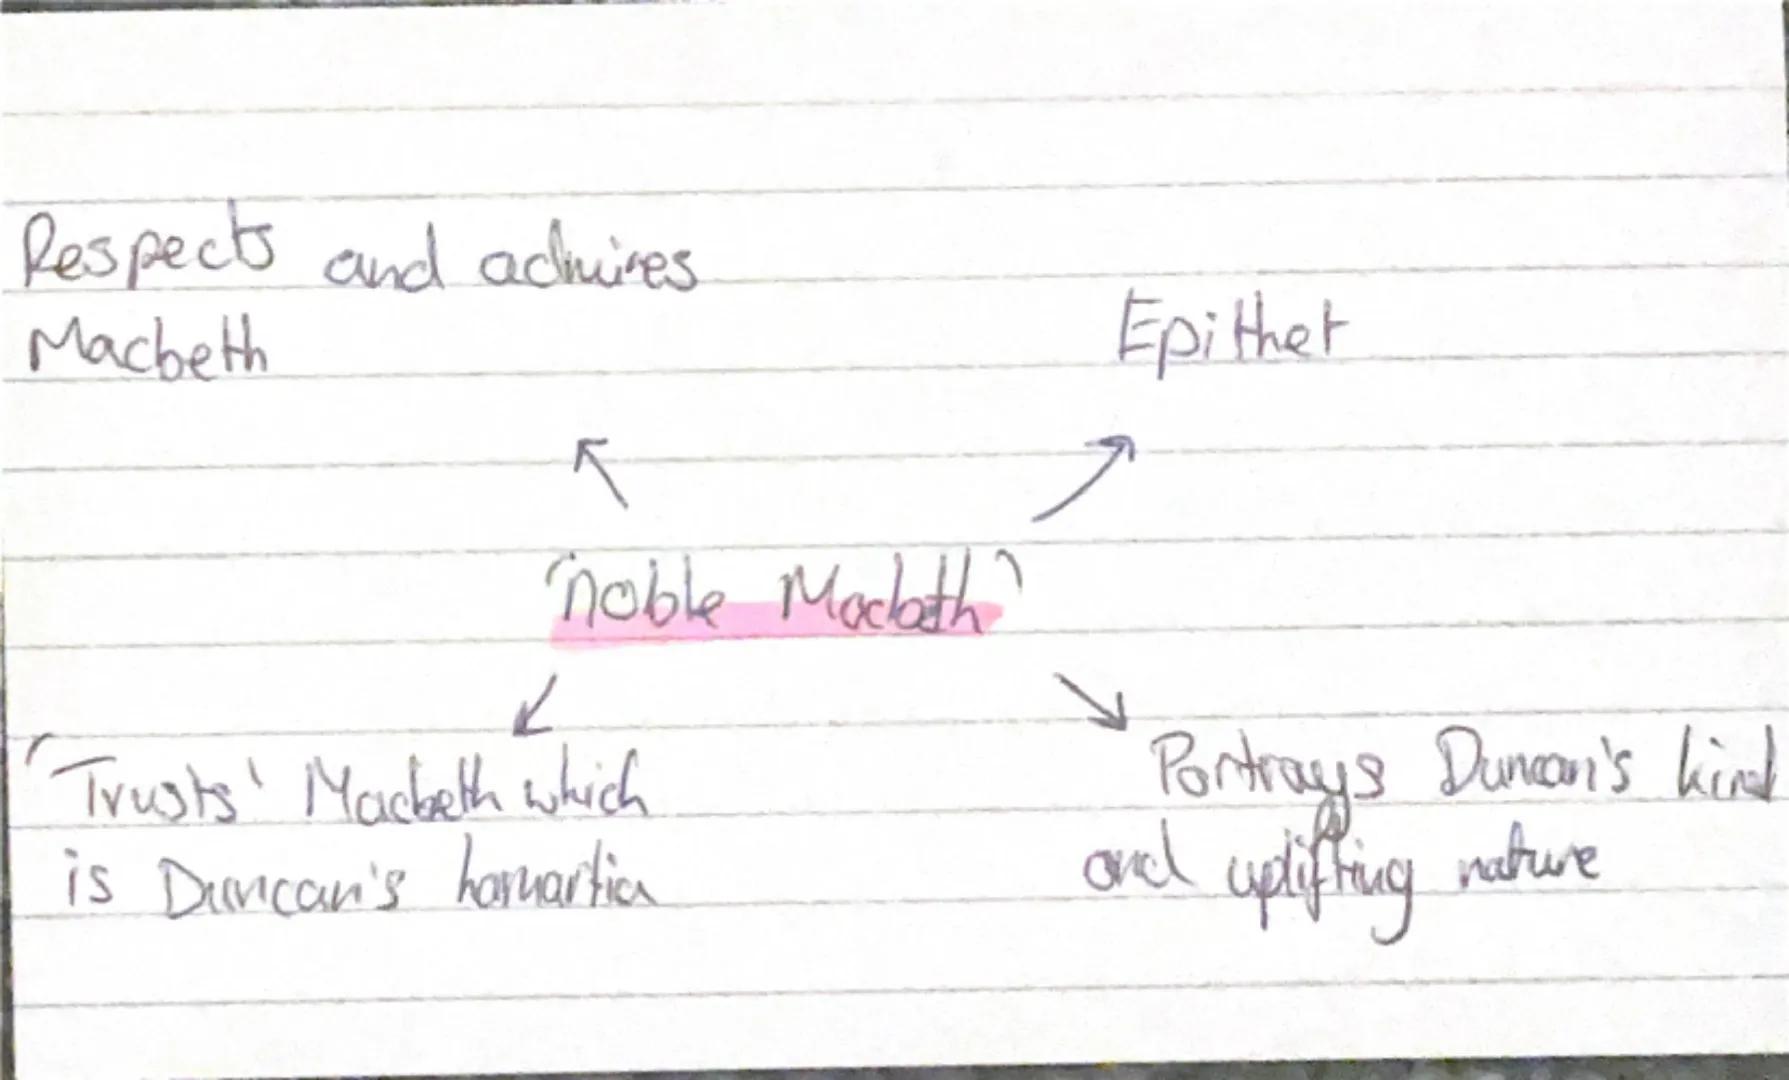 Respects and admires
Macbeth
Epithet
'noble Macbeth'
'Trusts' Macbeth which
is Duncan's hamartia
Portrays Duncan's kind
and uplifting nature